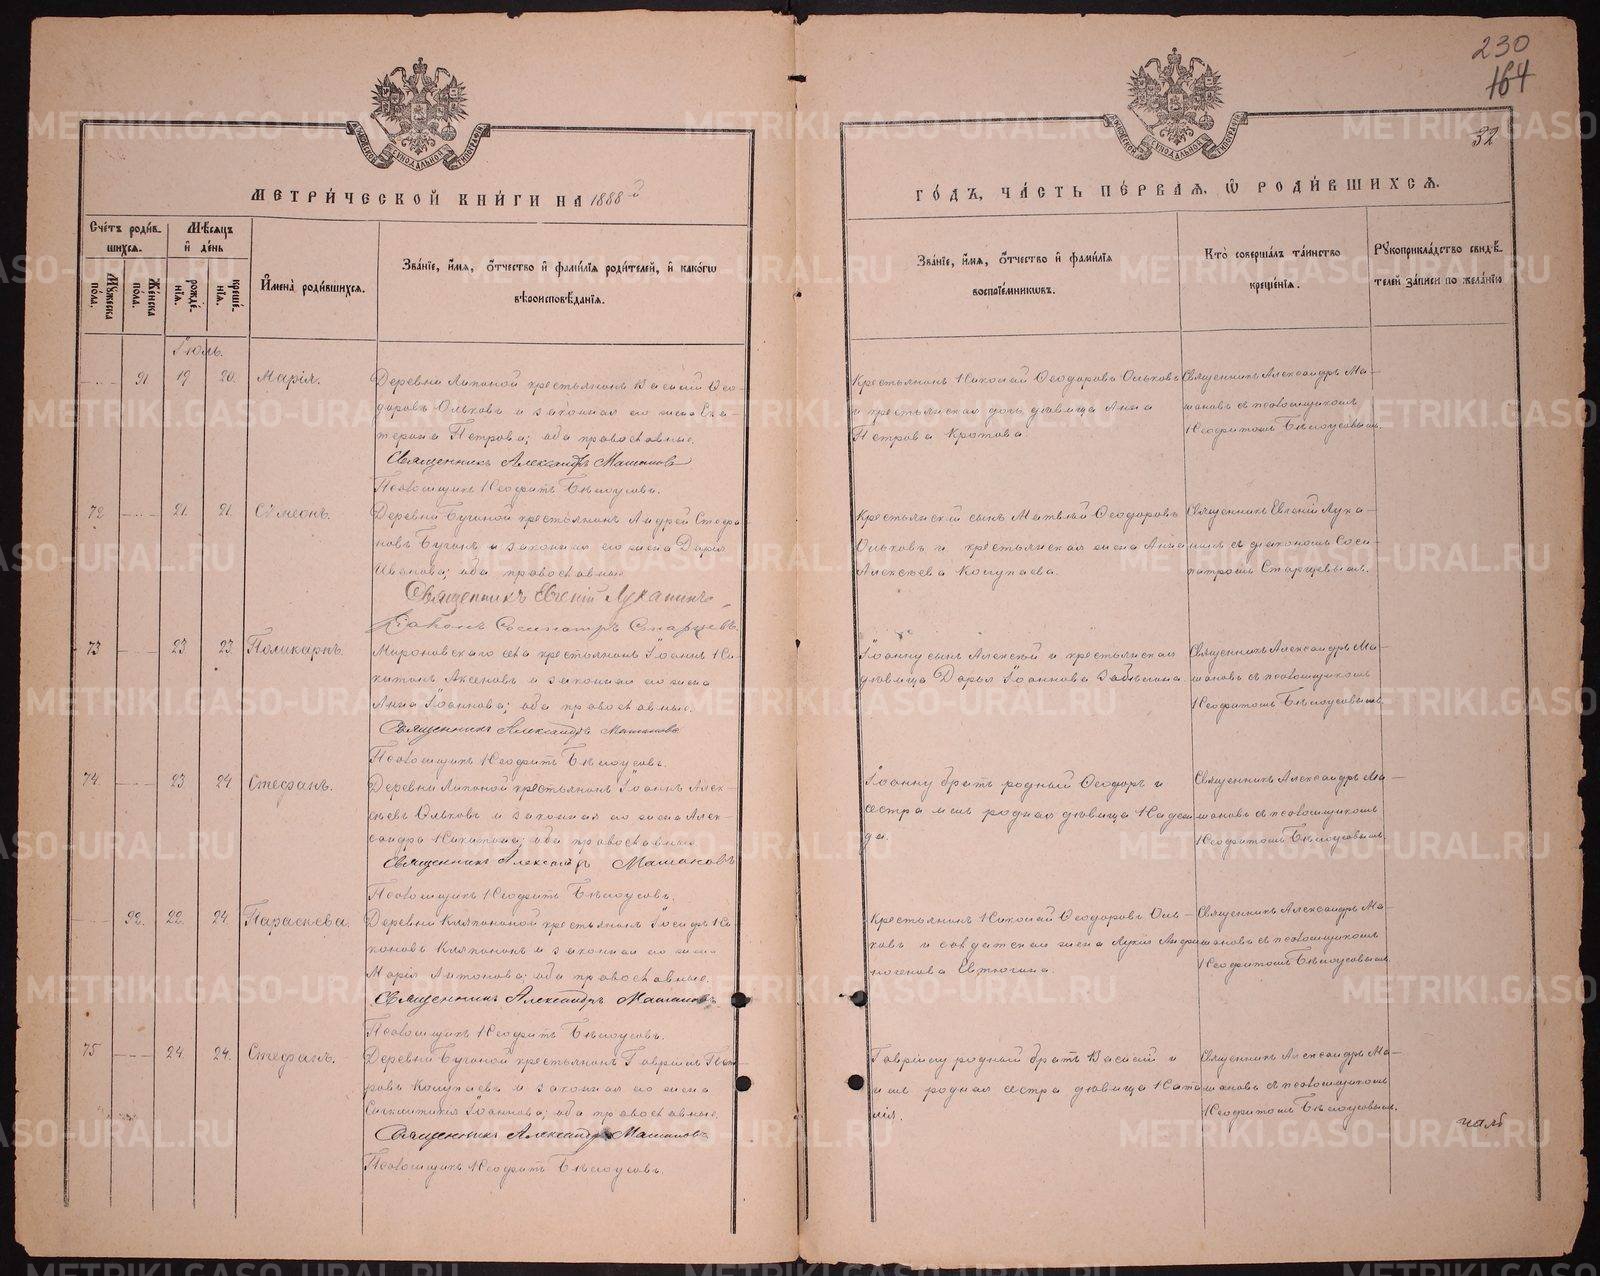 230
164
32
МЕТРИ́ЧЕСКОЙ КНИ́ГИ НА 1888й
ГО́ДЪ, ЧА́СТЬ ПЕ́РВАЯ, Ѡ РОДИ́ВШИХСЯ.
Сче́тъ роди́вшихся.
Мѣ́сяцъ и҆ де́нь
Мꙋ́жеска по́ла.
Же́нска по́ла.
рожде́нїѧ.
креще́нїѧ.
И҆мена̀ роди́вшихся.
Зва́нїе, и҆́мѧ, ѻ҆́тчество и҆ фамѝлїѧ роди́телей, и҆ како́гѡ
вѣроисповѣ́данїѧ.
Зва́нїе, и҆́мѧ, ѻ҆́тчество и҆ фамѝлїѧ
воспрїе́мникѡвъ.
Кто̀ соверша́лъ та́инство
креще́нїѧ.
Рꙋкоприкла́дство свидѣ́-
телей за́писи по жела́нїю
Іюль.
91 19 20. Марія.
Деревни Липиной крестьянинъ Василій Ѳео-
доровъ Ольховъ и законная его жена Ека-
терина Петрова; оба православные.
Священникъ Александръ Машановъ
Псаломщикъ Неофитъ Бѣлоусовъ.
Крестьянинъ Николай Ѳеодоровъ Ольховъ
и крестьянская дочь дѣвица Анна
Петрова Кротова.
Священникъ Александръ Ма-
шановъ съ псаломщикомъ
Неофитомъ Бѣлоусовымъ.
72 21. 21. Сѵмеонъ.
Деревни Бучиной крестьянинъ Андрей Стефа-
новъ и законная его жена Дарія
Иванова; оба православные
Священникъ Евгеній Луканинъ
Діаконъ Сосипатръ Старцевъ.
Крестьянскій сынъ Матвѣй Ѳеодоровъ
Ольховъ и крестьянская жена Анна
Алексѣева Колупаева.
Священникъ Евгеній Лука-
нинъ съ діакономъ Соси-
патромъ Старцевымъ.
73 23. 23. Поликарпъ.
Мироновскаго села крестьянинъ Іоаннъ Ни-
китинъ Аксеновъ и законная его жена
Анна Іоаннова; оба православные.
Священникъ Александръ Машановъ
Псаломщикъ Неофитъ Бѣлоусовъ.
Іоанну сынъ Алексѣй и крестьянская
дѣвица Дарья Іоаннова
Священникъ Александръ Ма-
шановъ съ псаломщикомъ
Неофитомъ Бѣлоусовымъ.
74. 23 24 Стефанъ.
Деревни Липиной крестьянинъ Іоаннъ Алек-
сѣевъ Ольховъ и законная его жена Алек-
сандра Никитина; оба православные.
Священникъ Александръ Машановъ
Псаломщикъ Неофитъ Бѣлоусовъ.
Іоанну братъ родный Ѳеодоръ и
сестра имъ родная дѣвица Надеж-
да.
Священникъ Александръ Ма-
шановъ съ псаломщикомъ
Неофитомъ Бѣлоусовымъ.
92. 22. 24 Параскева.
Деревни крестьянинъ Іосифъ Ни-
коновъ и законная его жена
Марія Антонова; оба православные.
Священникъ Александръ Машановъ
Псаломщикъ Неофитъ Бѣлоусовъ.
Крестьянинъ Николай Ѳеодоровъ Оль-
ховъ и солдатская жена Лукія
Евтюгина.
Священникъ Александръ Ма-
шановъ съ псаломщикомъ
Неофитомъ Бѣлоусовымъ.
75 24. 24. Стефанъ.
Деревни Бучиной крестьянинъ Гавріилъ Пет-
ровъ Колупаевъ и законная его жена
Синклитикія Іоаннова; оба православные.
Священникъ Александръ Машановъ
Псаломщикъ Неофитъ Бѣлоусовъ.
Гавріилу родный братъ Василій и
имъ родная сестра дѣвица Ната-
лія.
Священникъ Александръ Ма-
шановъ съ псаломщикомъ
Неофитомъ Бѣлоусовымъ.
METRIKI.GASO-URAL.RU